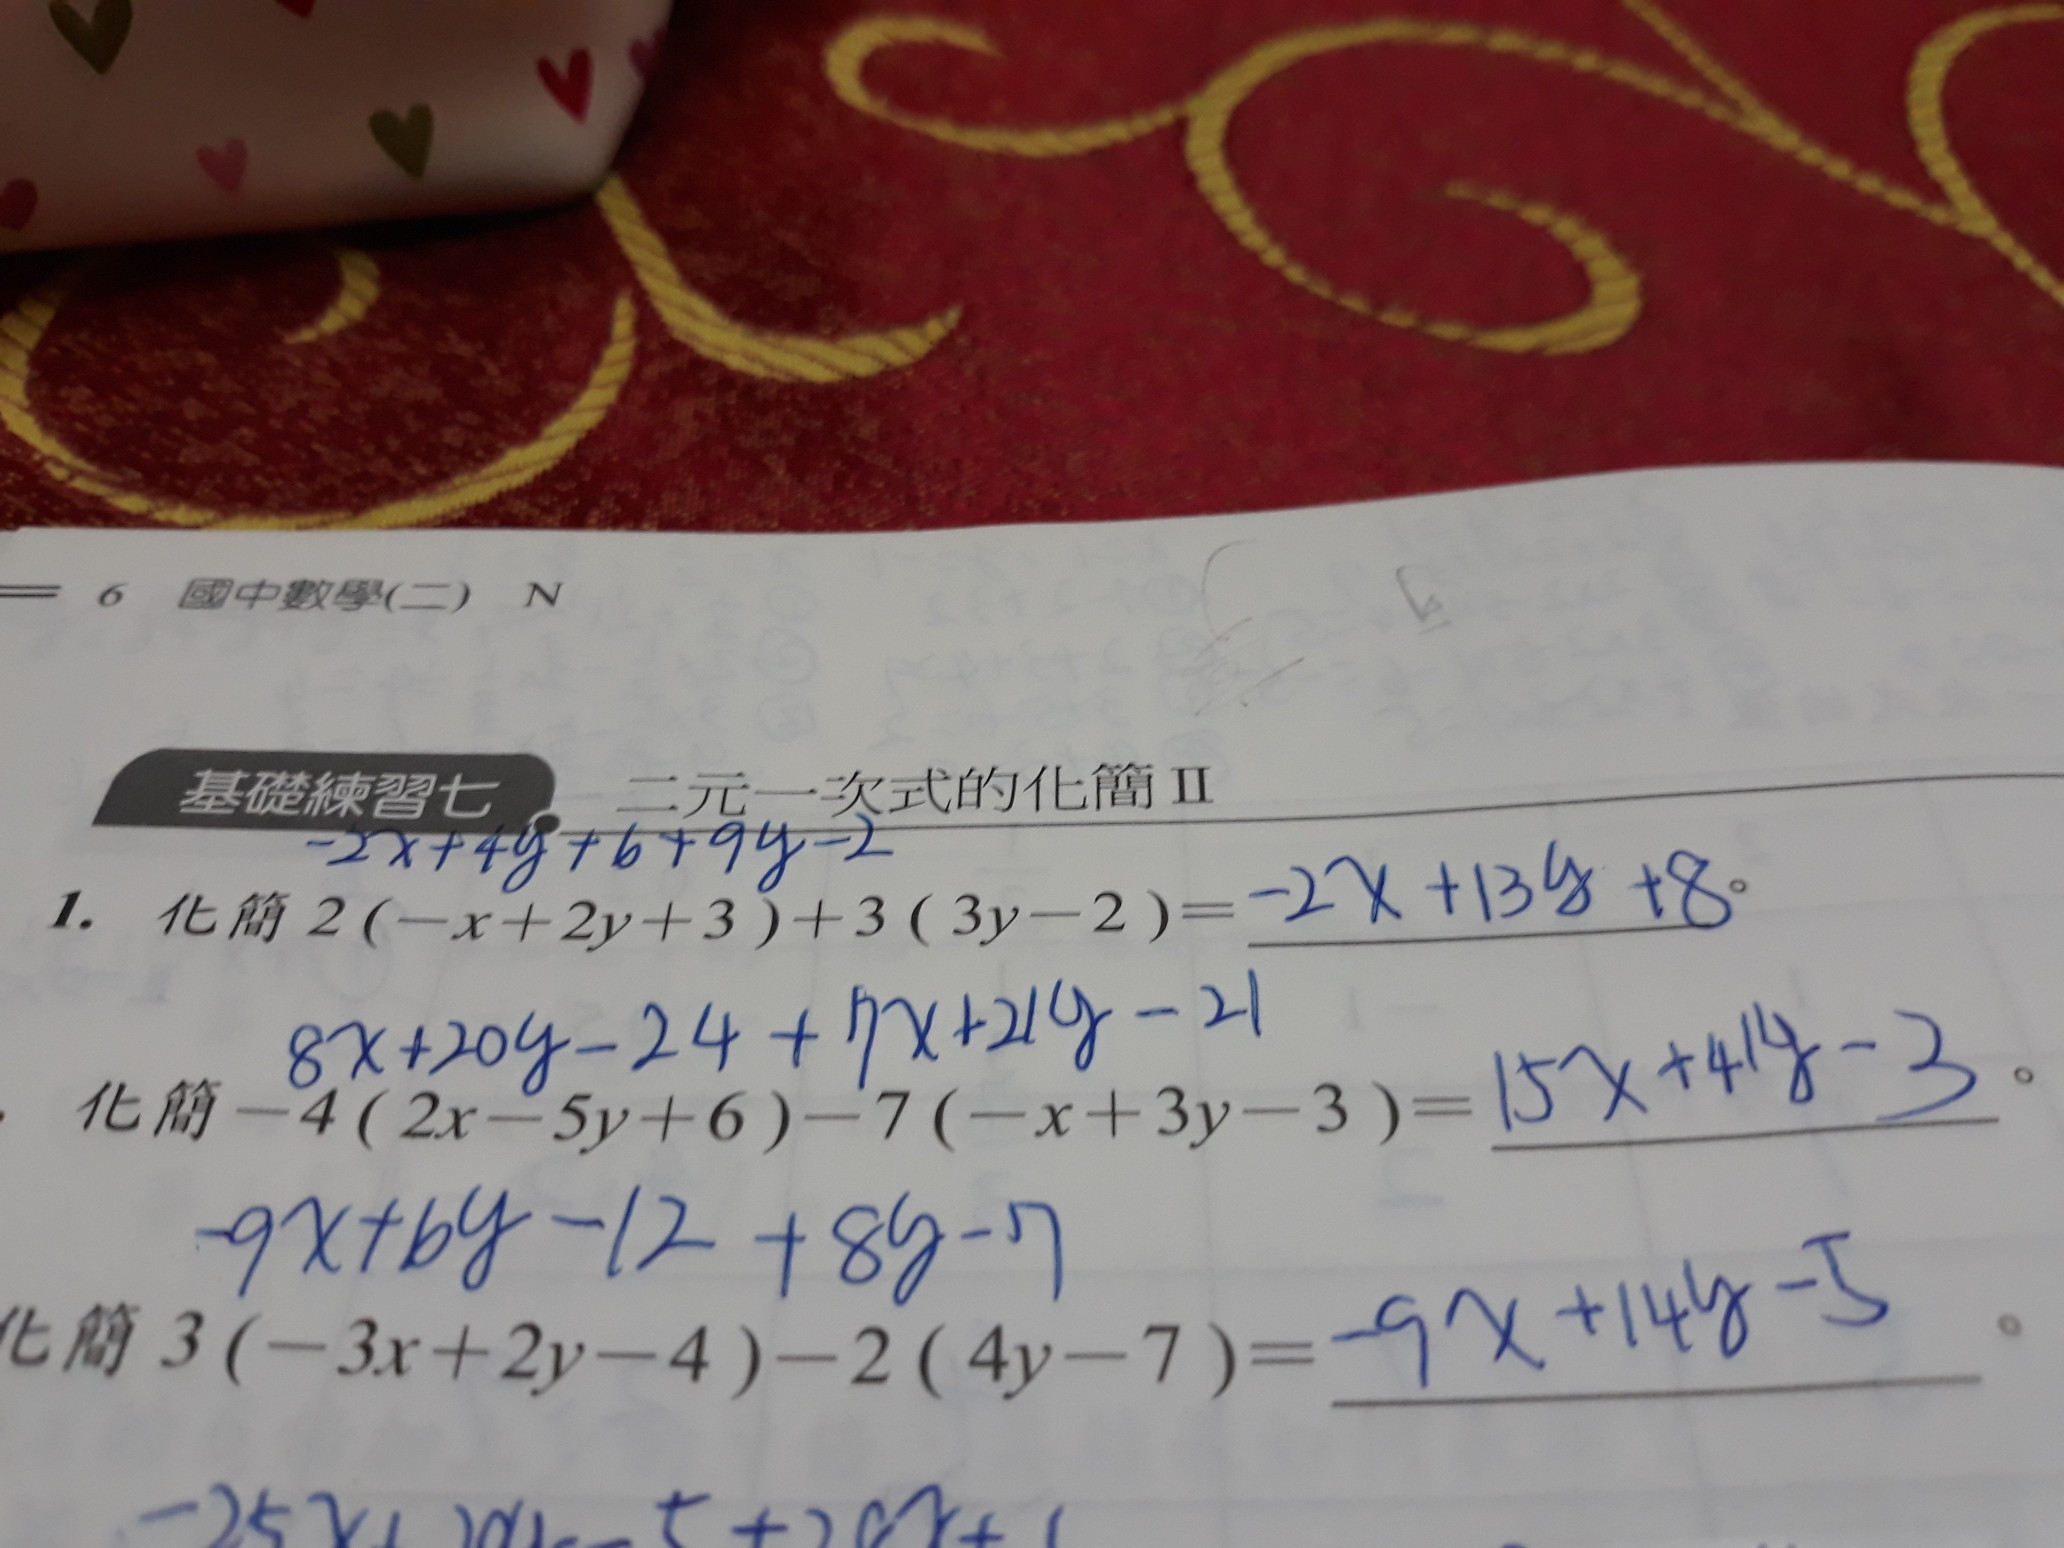 6 國中數學(二) N
基礎練習七 二元一次式的化簡 II
-2x+4y+6+9y-2
1. 化簡 2(-x+2y+3)+3(3y-2)= -2x+13y+8。
8x+20y-24+7x+21y-21
化簡 -4(2x-5y+6)-7(-x+3y-3)= 15x+41y-3。
-9x+6y-12+8y-7
化簡 3(-3x+2y-4)-2(4y-7)= -9x+14y-5。